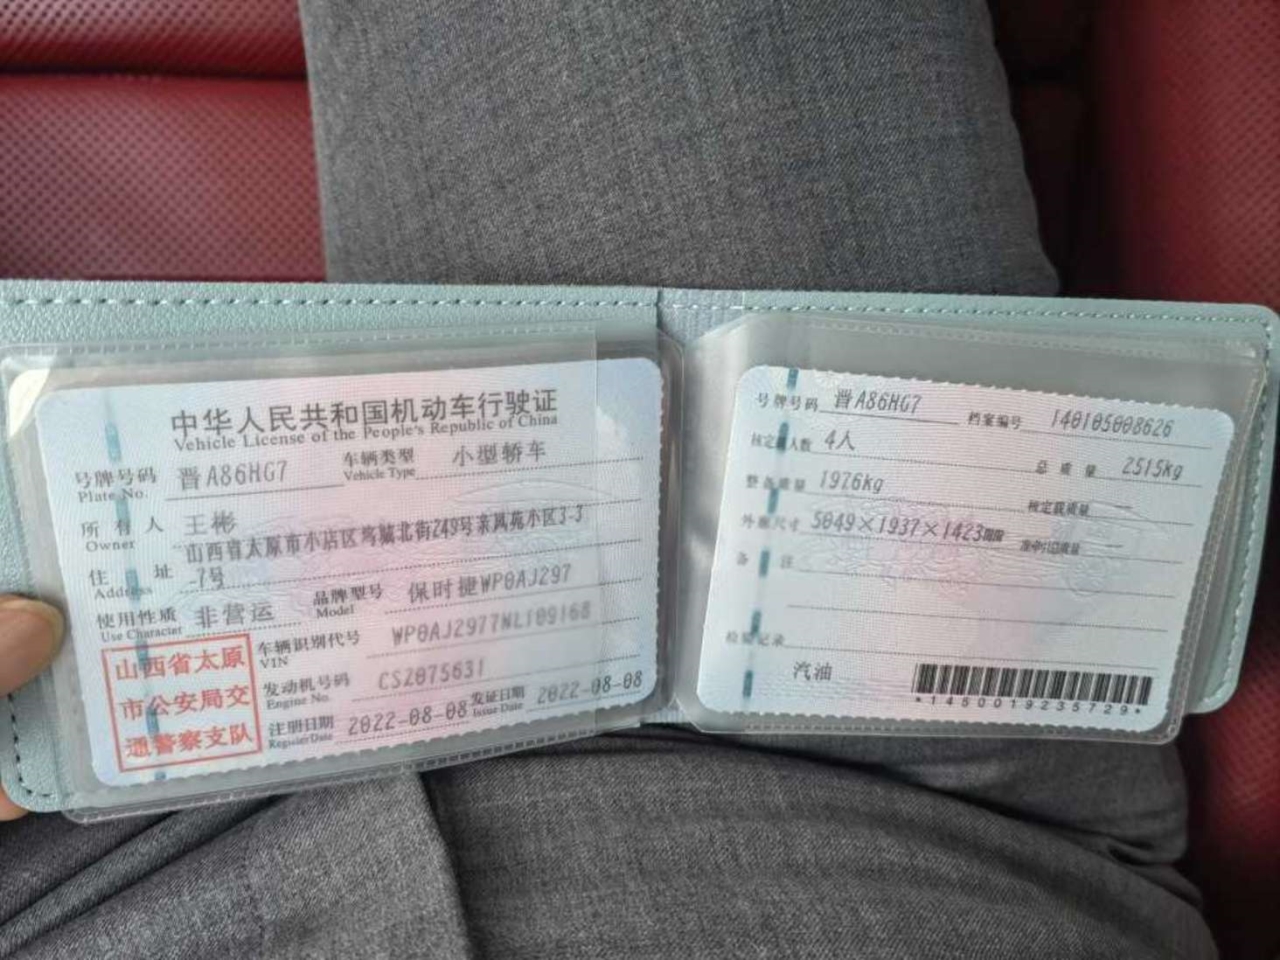 中华人民共和国机动车行驶证
Vehicle License of the People's Republic of China
号牌号码 晋A86HG7 车辆类型 小型轿车
Plate No. Vehicle Type
所有人 王彬
Owner
山西省太原市小店区 北街249号亲凤苑小区3-3
住址 -7号
Address
使用性质 非营运 品牌型号 保时捷WP0AJ297
Use Character Model
车辆识别代号 WP0AJ2977NL109168
VIN
发动机号码 CS2075631
Engine No.
注册日期 2022-08-08 发证日期 2022-08-08
Register Date Issue Date
山西省太原
市公安局交
通警察支队
号牌号码 晋A86HG7 档案编号 140105008626
核定载人数 4人 总质量 2515kg
整备质量 1976kg 核定载质量 —
外廓尺寸 5049×1937×1423 准牵引总质量 —
备注
检验记录
汽油
*1450019235729*